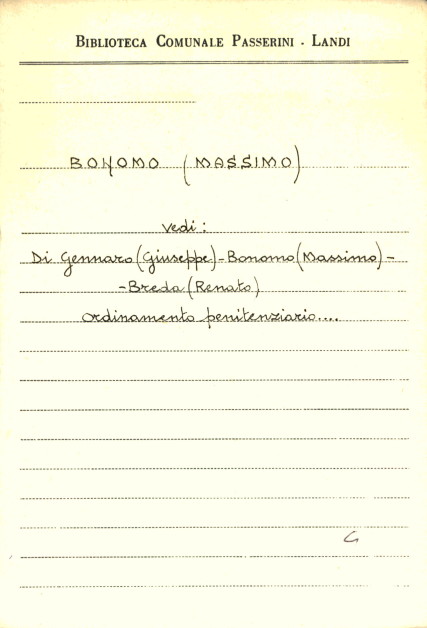 BIBLIOTECA COMUNALE PASSERINI - LANDI
BONOMO (MASSIMO)
Vedi:
Di Gennaro (Giuseppe) - Bonomo (Massimo) -
- Breda (Renato)
Ordinamento penitenziario....
G